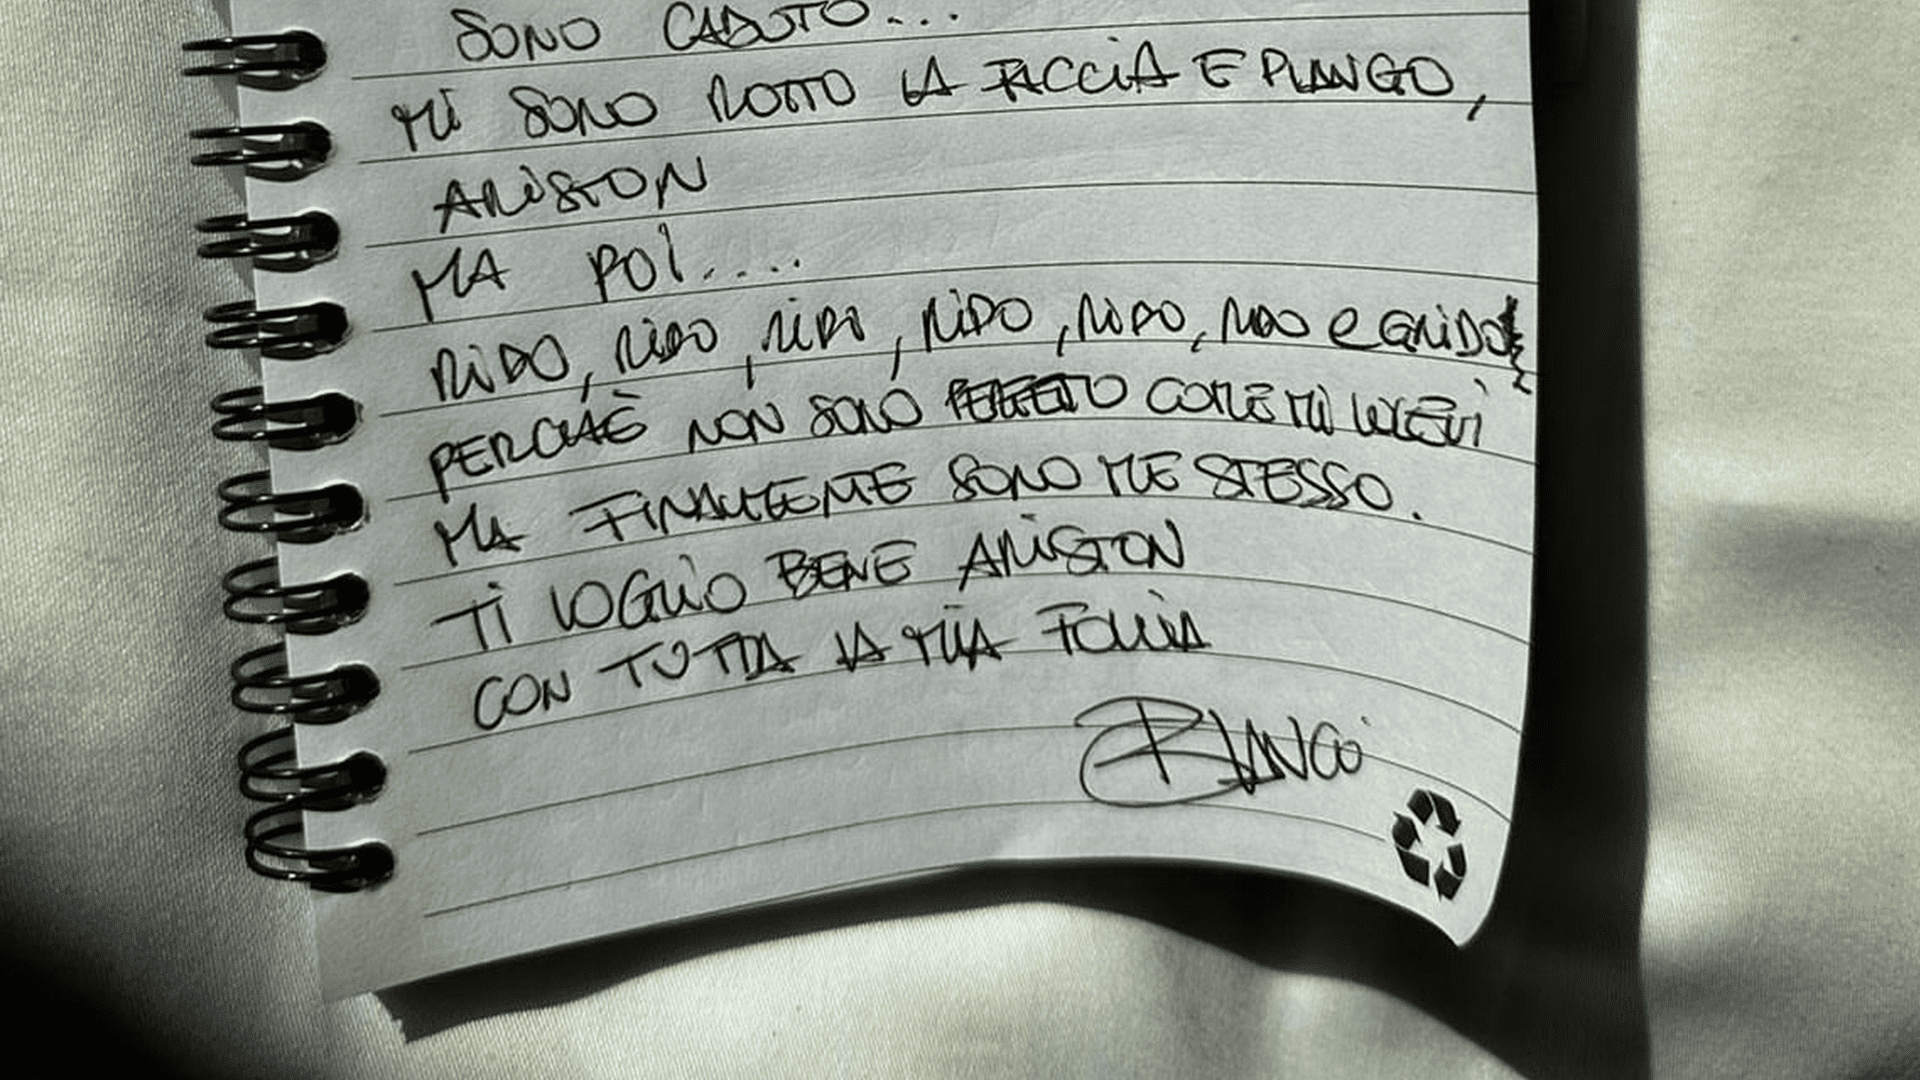 SONO CADUTO...
MI SONO ROTTO LA FACCIA E PIANGO,
ARISTON
MA POI....
RIDO, RIDO, RIDO, RIDO, RIDO, RIDO E GRIDO
PERCHÈ NON SONO PERFETTO COME MI VOLEVI
MA FINALMENTE SONO ME STESSO.
TI VOGLIO BENE ARISTON
CON TUTTA LA MIA FOLLIA
BIANCO